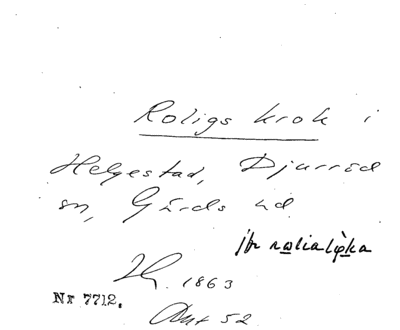 Roligs krok i
Helgestad, Djurröd
sn, Gärds hd.
jfr rolialyka
1863
Nr 7712.
52